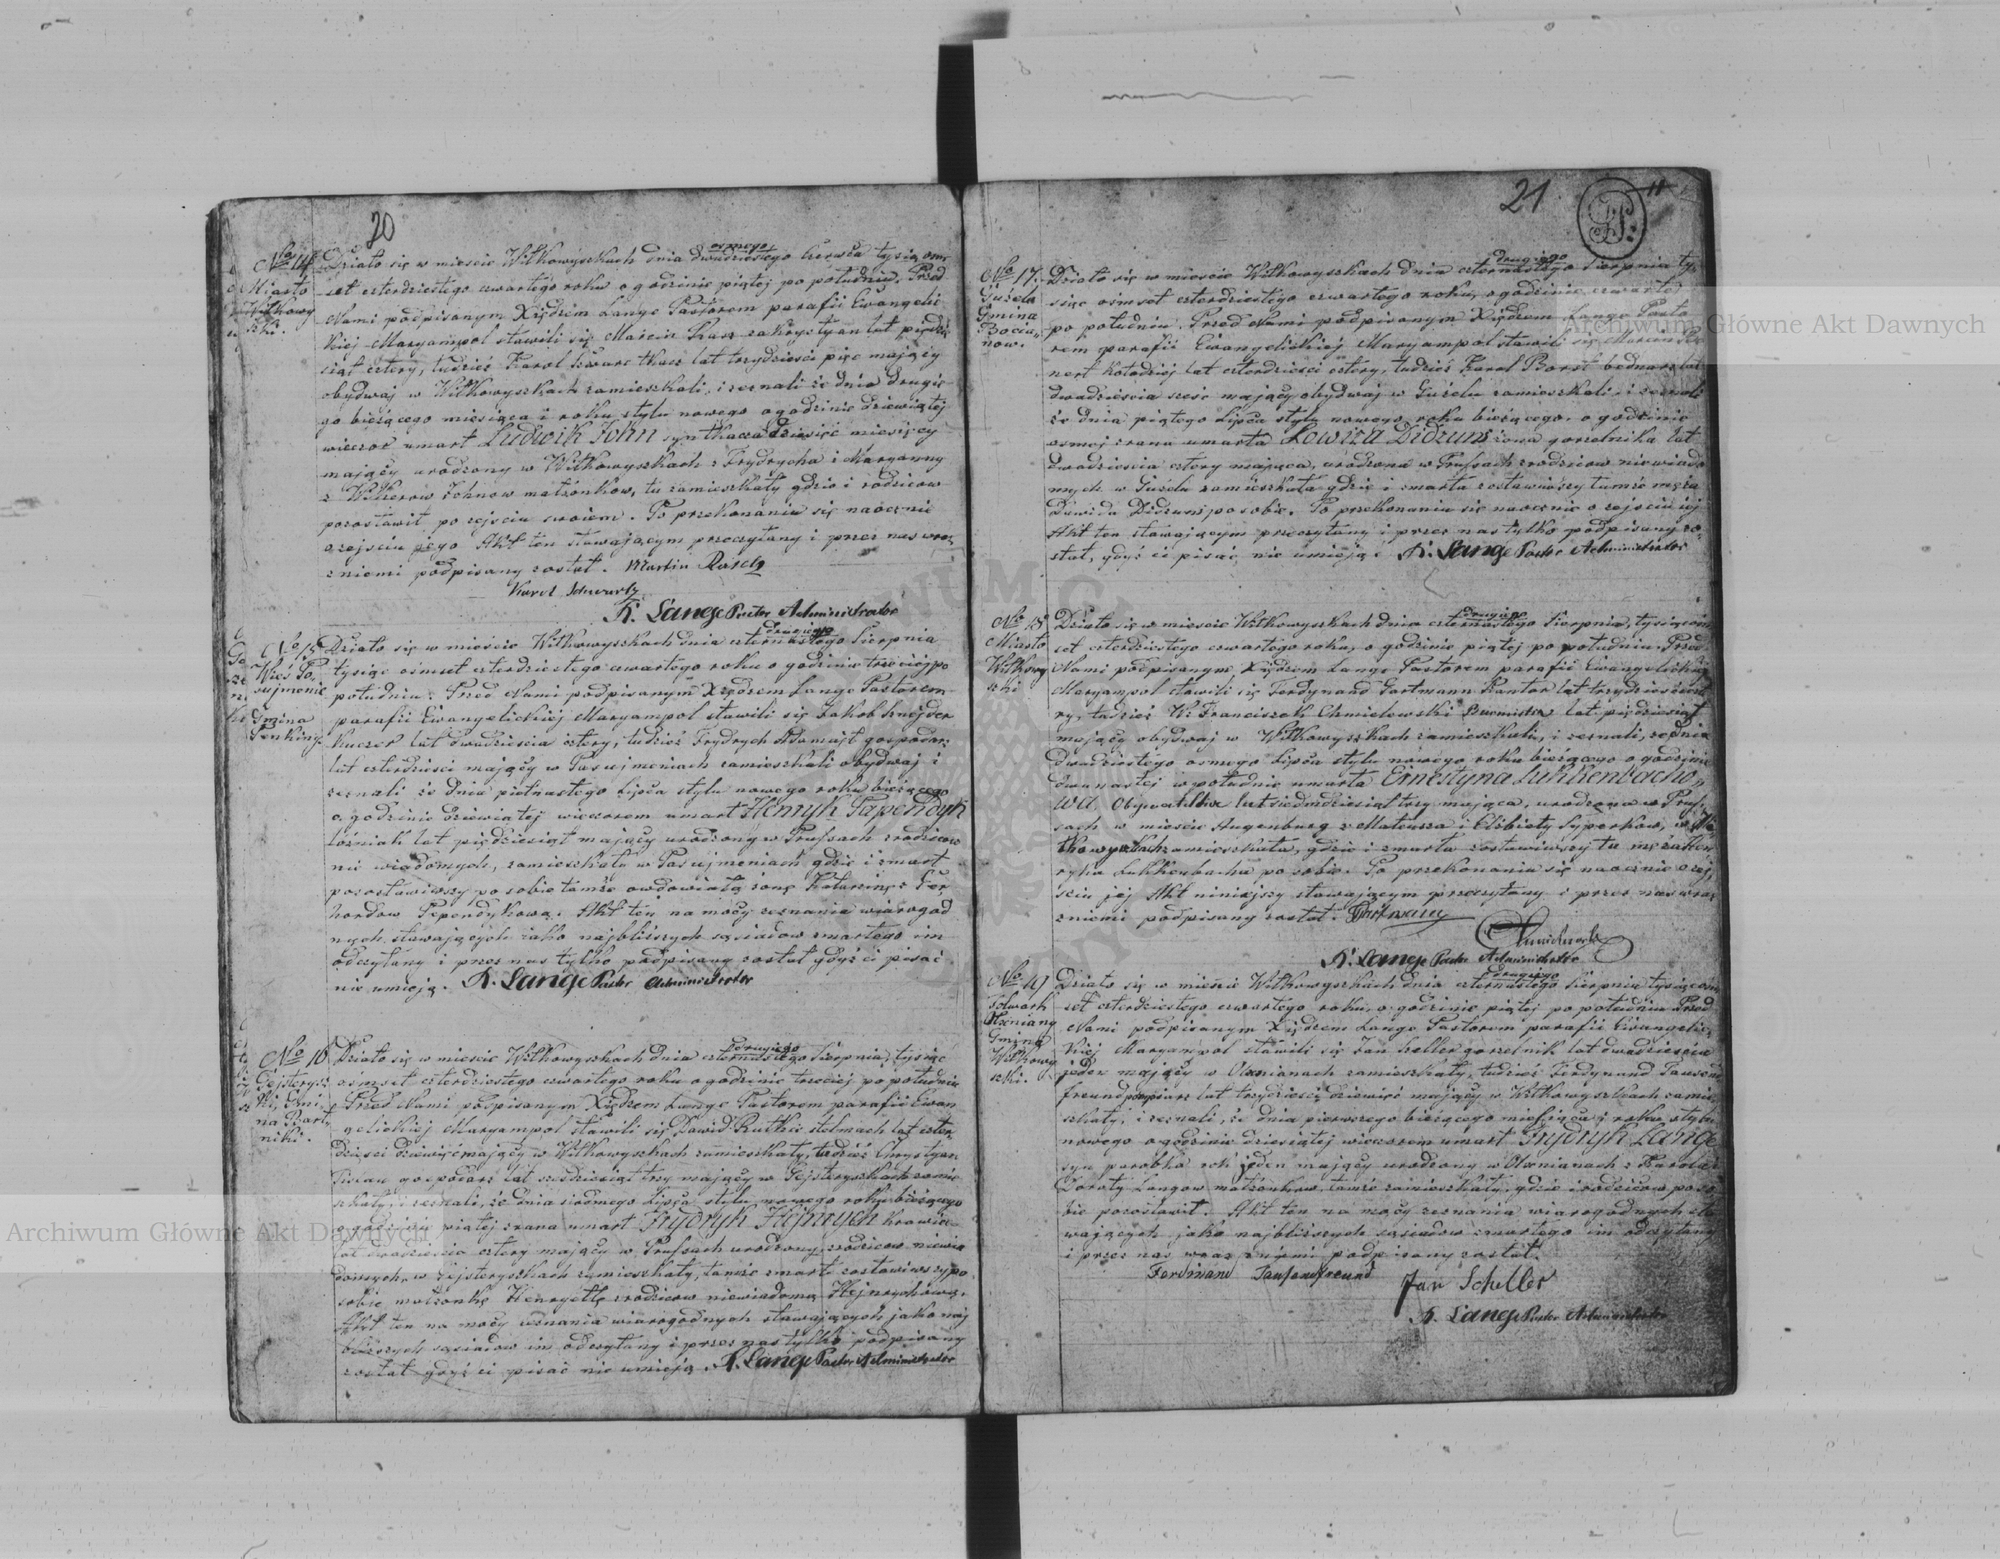 20
No 14
Miasto
Wiłkowy
szki.
osmego
Działo się w mieście Wiłkowyszkach dnia dwudziestego Czerwca tysiąc om
set czterdziestego czwartego roku o godzinie piątej po południu. Przed
Nami podpisanym Xiędzem Lange Pastorem parafii Ewangelic
kiej Maryampol stawili się Marcin zakrystyan lat pięćdzie
siąt cztery, tudzież Karol Szwarc tkacz lat trzydzieści pięc mający
obydwaj w Wiłkowyszkach zamieszkali, i zeznali że dnia drugie
go bieżącego miesiąca i roku stylu nowego o godzinie dziewiątej
wieczor umarł Ludwik John syn tkacza dziesięć miesięcy
mający urodzony w Wiłkowyszkach z Frydrycha i Maryanny
z Johnow małżonkow, tu zamieszkały gdzie i rodzicow
pozostawił po zejściu swoiem. Po przekonaniu się naocznie
o zejściu jego Akt ten stawającym przeczytany i przez nas wraz
z niemi podpisany został. Martin Rasch
Karol Schwartz
K. Lange Pastor Administrator
No 15
Wieś Po
sujmenie
Gmina
Penkiny
drugiego
Działo się w mieście Wiłkowyszkach dnia czternastego Sierpnia
tysiąc osmset czterdziestego czwartego roku o godzinie trzeciej po
południu. Przed Nami podpisanym Xiędzem Lange Pastorem
parafii Ewangelickiej Maryampol stawili się Jakob Sznejder
Kuczer lat dwadzieścia cztery, tudzież Frydrych Adamajt gospodarz
lat czterdzieści mający w Posujmeniach zamieszkali obydwaj i
zeznali że dnia piętnastego Lipca stylu nowego roku bieżącego
o godzinie dziewiątej wieczorem umarł Henryk Papendyk
lozniak lat pięćdziesiąt mający urodzony w Prussach z rodzicow
nie wiadomych, zamieszkały w Posujmeniach gdzie i zmarł
pozostawiwszy po sobie tamże owdowiałą żonę Katarzynę z Ger
hardow Papendykową. Akt ten na mocy zeznania wiarogod
nych stawających jako najbliższych sąsiadow zmarłego im
odczytany i przez nas tylko podpisany został gdyż ci pisać
nie umieją. K. Lange Pastor Administrator
No 16
Gejsterysz
ki, Gmi
na Bart
niki.
drugiego
Działo się w mieście Wiłkowyszkach dnia czternastego Sierpnia tysiąc
osmset czterdziestego czwartego roku o godzinie trzeciej po południu
Przed Nami podpisanym Xiędzem Lange Pastorem parafii Ewan
gelickiej Maryampol stawili się Dawid Rutkie stelmach lat czter
dzieści dziewięć mający w Wiłkowyszkach zamieszkały, tudzież Chrystyan
gospodarz lat sześdziesiąt trzy mający w Gejsteryszkach zamie
szkały, i zeznali, że dnia siodmego Lipca stylu nowego roku bieżącego
o godzinie piątej z rana umarł Frydryk Hejnrych krawiec
lat dwadzieścia cztery mający w Prussach urodzony z rodzicow niewia
domych, w Gejsteryszkach zamieszkały, tamże zmarł zostawiwszy po
sobie małżonkę Henryettę z rodzicow niewiadomą Hejnrychową.
Akt ten na mocy zeznania wiarogodnych stawających jako naj
bliższych sąsiadow im odczytany i przez nas tylko podpisany
został gdyż ci pisać nie umieją. K. Lange Pastor Administrator
21
No 17.
Gużele
Gmina
Pocia
now.
drugiego
Działo się w mieście Wiłkowyszkach dnia czternastego Sierpnia ty
siąc osmset czterdziestego czwartego roku, o godzinie czwartej
po południu. Przed Nami podpisanym Xiędzem Lange Pasto
rem parafii Ewangelickiej Maryampol stawili się Marcin
nert kołodziej lat czterdzieści cztery, tudzież Karol Borst bednarz lat
dwadzieścia sześć mający obydwaj w Gużelu zamieszkali, i zeznali
że dnia piątego Lipca stylu nowego roku bieżącego, o godzinie
osmej z rana umarła Lowiza Didzuns żona gorzelnika lat
dwadzieścia cztery mająca, urodzona w Prussach z rodzicow niewiado
mych w Gużelu zamieszkała gdzie i zmarła zostawiwszy tamże męża
Dawida Didzuns po sobie. Po przekonaniu się naocznie o zejściu jej
Akt ten stawającym przeczytany i przez nas tylko podpisany zo
stał, gdyż ci pisać nie umieją. K. Lange Pastor Administrator
No 18
Miasto
Wiłkowy
szki
drugiego
Działo się w mieście Wiłkowyszkach dnia czternastego Sierpnia, tysiąc osm
set czterdziestego czwartego roku, o godzinie piątej po południu. Przed
Nami podpisanym Xiędzem Lange Pastorem parafii Ewangelickiej
Maryampol stawili się Ferdynand Gortmann Kantor lat trzydzieści czte
ry, tudzież W. Franciszek Chmielewski Burmistrz lat pięćdziesiąt
mający obydwaj w Wiłkowyszkach zamieszkali, i zeznali, że dnia
dwudziestego osmego Lipca stylu nowego roku bieżącego o godzinie
dwunastej w południe umarła Ernestyna Lukkenbacho
wa Obywatelka lat siedmdziesiąt trzy mająca, urodzona w Prus
sach w mieście Angenburg z Mateusza i Elżbiety Syperkow, w Wił
kowyszkach zamieszkała, gdzie i zmarła zostawiwszy tu męża Hen
ryka Lukkenbacha po sobie. Po przekonaniu się naocznie o zej
ściu jej Akt niniejszy stawającym przeczytany i przez nas wraz
z niemi podpisany został.
Chmielewski
K. Lange Pastor Administrator
No 19
Folwark
Olxniany
Gmina
Wiłkowy
szki.
drugiego
Działo się w mieście Wiłkowyszkach dnia czternastego Sierpnia tysiąc osm
set czterdziestego czwartego roku, o godzinie piątej po południu Przed
Nami podpisanym Xiędzem Lange Pastorem parafii Ewangelic
kiej Maryampol stawili się Jan Szeller gorzelnik lat dwadzieścia
jeden mający w Olxnianach zamieszkały, tudzież Ferdynand Tausend
freund lat trzydzieści dziewięć mający w Wiłkowyszkach zamie
szkały, i zeznali, że dnia pierwszego bieżącego miesiąca i roku stylu
nowego o godzinie dziesiątej wieczorem umarł Frydryk Lange
syn parobka rok jeden mający urodzony w Olxnianach z Karola i
Doroty Langow małżonkow, tamże zamieszkały, gdzie i rodzicow po so
bie pozostawił. Akt ten na mocy zeznania wiarogodnych sta
wających jako najbliższych sąsiadow zmarłego im odczytany
i przez nas wraz z niemi podpisany został.
Ferdinand Tausendfreund
Jan Scheller
K. Lange Pastor Administrator
Archiwum Główne Akt Dawnych
Archiwum Główne Akt Dawnych